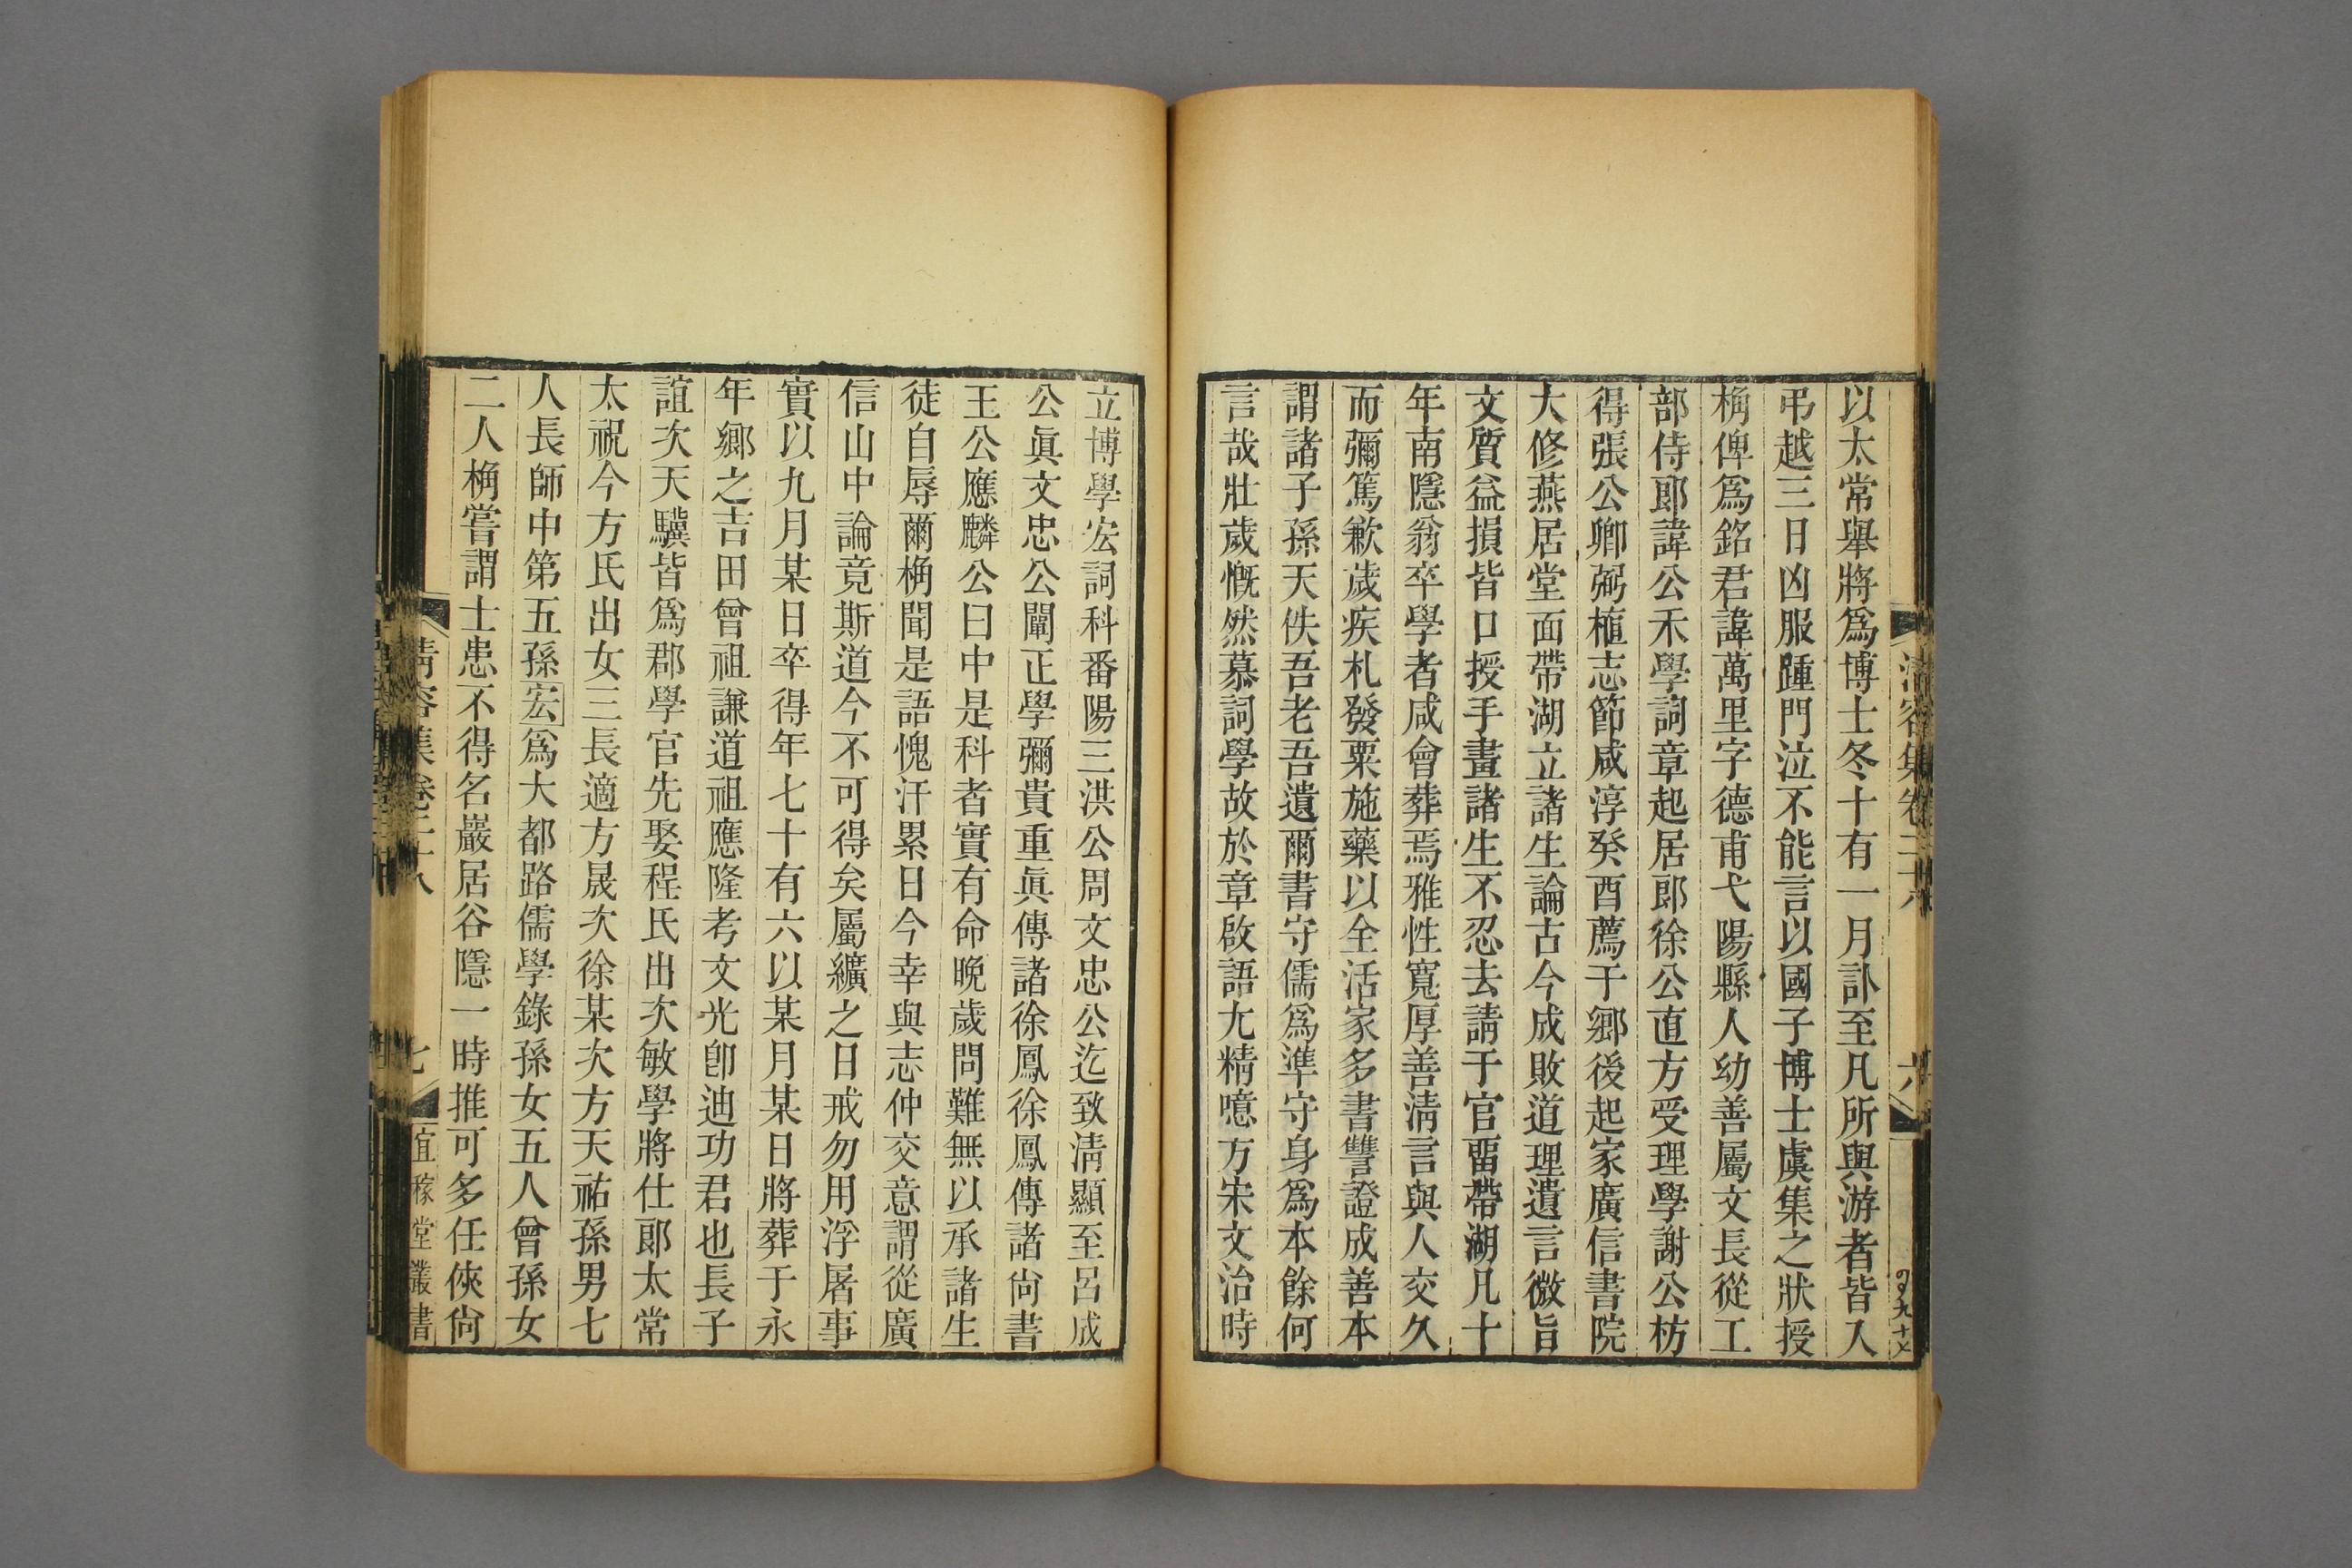 以太常舉將爲博士冬十有一月訃至凡所與游者皆入
弔越三日凶服踵門泣不能言以國子博士虞集之狀授
桷俾爲銘君諱萬里字德甫弋陽縣人幼善屬文長從工
部侍郎諱公禾學詞章起居郎徐公直方受理學謝公枋
得張公卿弼植志節咸淳癸酉薦于鄉後起家廣信書院
大修燕居堂面帶湖立諸生論古今成敗道理遺言微旨
文質益損皆口授手畫諸生不忍去請于官畱帶湖凡十
年南隱翁卒學者咸會葬焉雅性寬厚善淸言與人交久
而彌篤歉歲疾札發粟施藥以全活家多書讐證成善本
謂諸子孫天佚吾老吾遺爾書守儒爲準守身爲本餘何
言哉壯歲慨然慕詞學故於章啟語尢精噫方宋文治時
淸容集卷二十八
六
立博學宏詞科番陽三洪公周文忠公迄致淸顯至呂成
公眞文忠公闡正學彌貴重眞傳諸徐鳳徐鳳傳諸尙書
王公應麟公曰中是科者實有命晚歲問難無以承諸生
徒自辱爾桷聞是語愧汗累日今幸與志仲交意謂從廣
信山中論竟斯道今不可得矣屬纊之日戒勿用浮屠事
實以九月某日卒得年七十有六以某月某日將葬于永
年鄉之吉田曾祖謙道祖應隆考文光卽迪功君也長子
誼次天驥皆爲郡學官先娶程氏出次敏學將仕郎太常
太祝今方氏出女三長適方晟次徐某次方天祐孫男七
人長師中第五孫宏爲大都路儒學錄孫女五人曾孫女
二人桷嘗謂士患不得名巖居谷隱一時推可多任俠尙
淸容集卷二十八
七
宜稼堂叢書